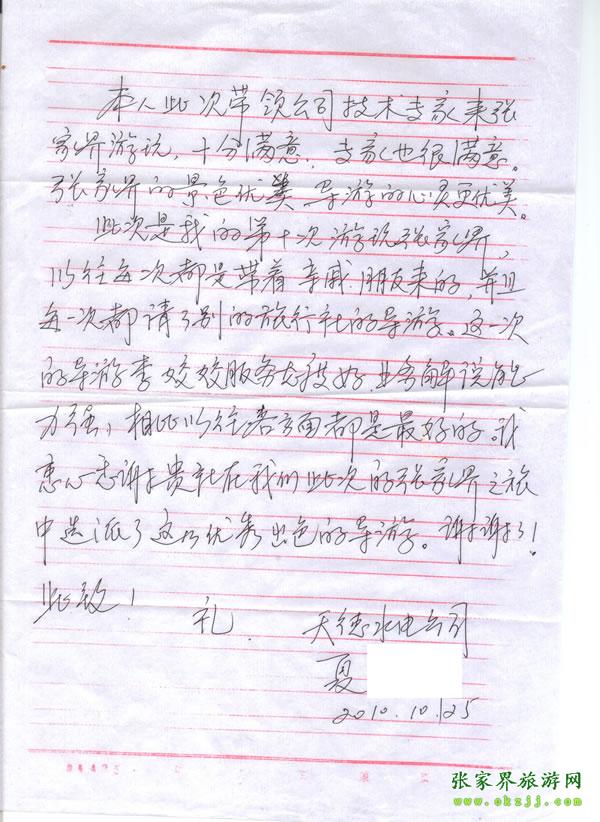 本人此次带领公司技术专家来张
家界游玩，十分满意，专家也很满意。
张家界的景色优美 导游的心灵更优美。
此次是我的第十次游玩张家界，
以往每次都是带着亲戚朋友来的，并且
每一次都请了别的旅行社的导游。这一次
的导游李姣姣服务态度好 业务解说能
力强，相比以往各方面都是最好的。我
衷心感谢贵社在我们此次的张家界之旅
中选派了这么优秀出色的导游。谢谢了！
此致！
礼
天德水电公司
夏
2010.10.25
张家界旅游网
www.okzjj.com